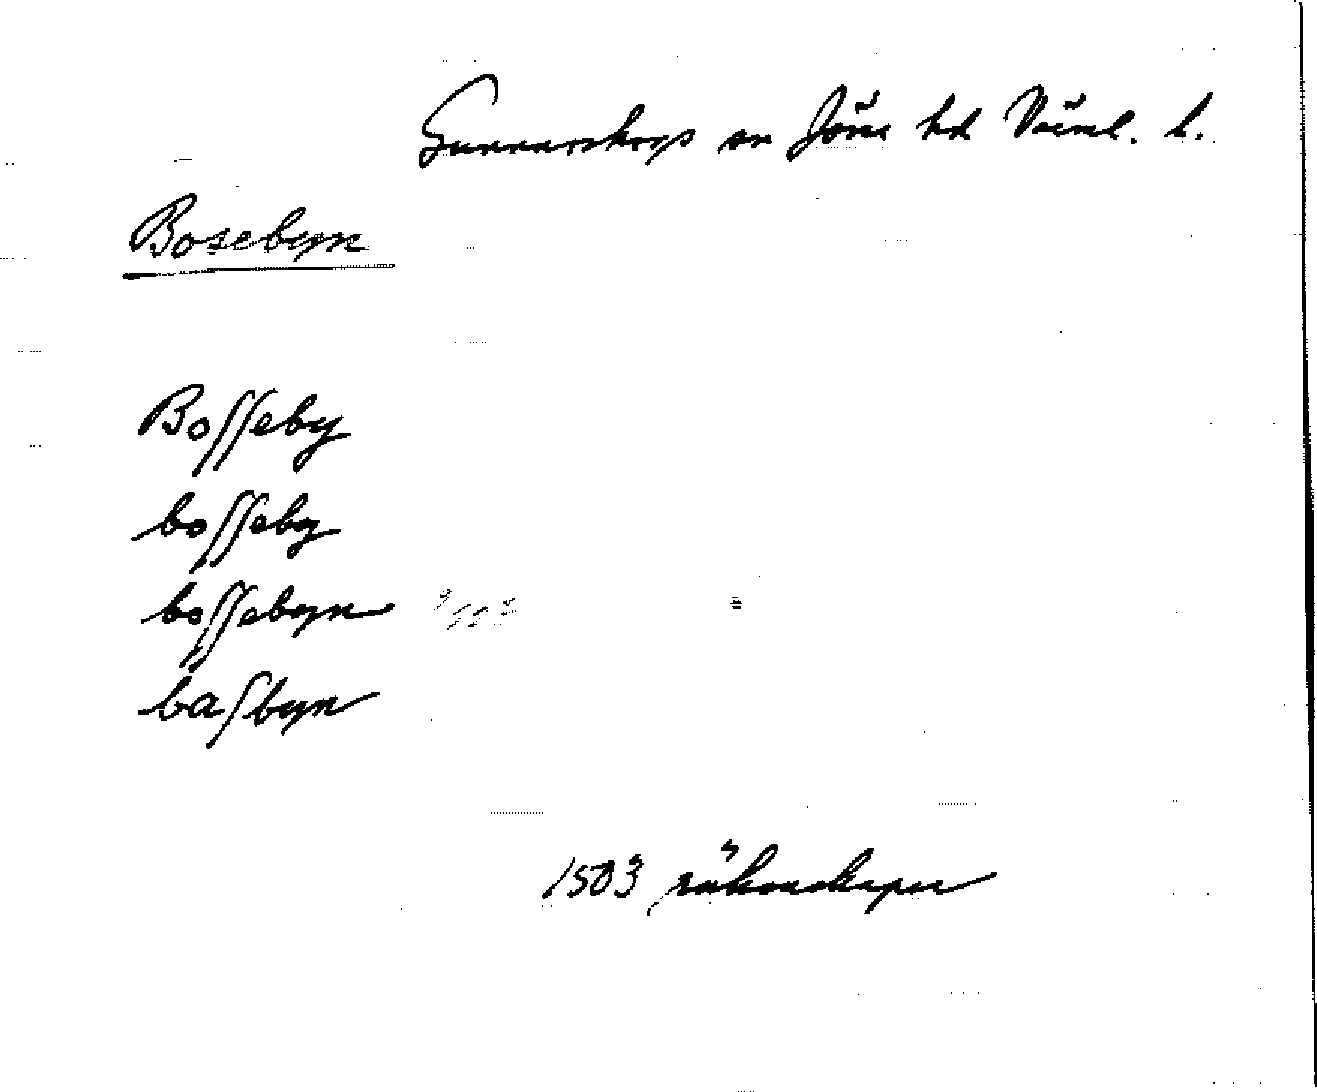 Gunnarskogs sn Jösse hd Värml. l.
Bosebyn
Bosseby
bosseby
bossebyn
basbyn
1503 räkenskaper